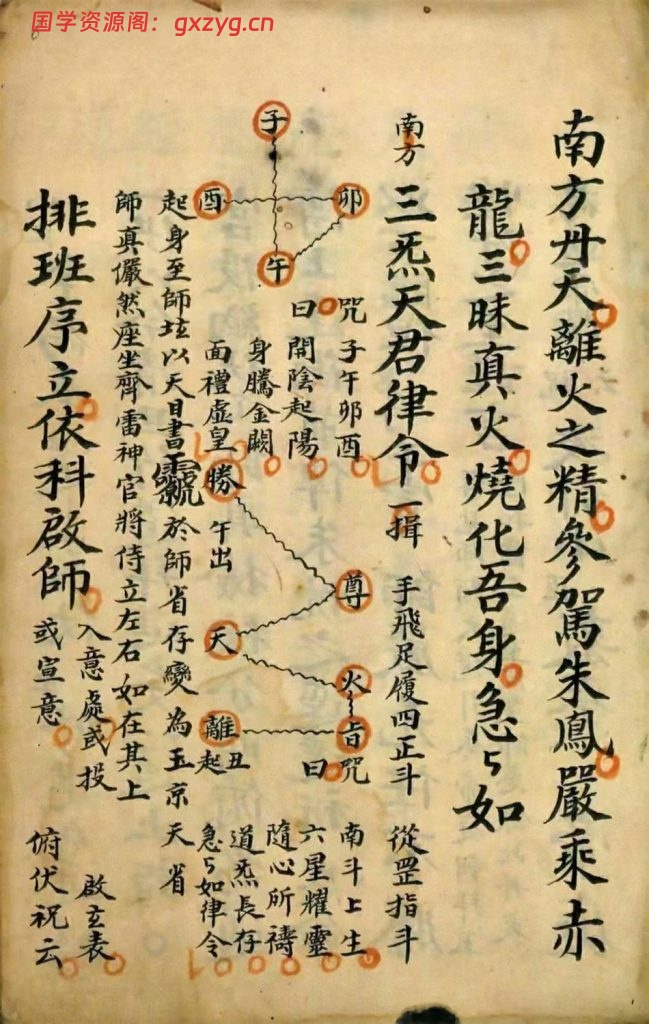 国学资源阁：gxzyg.cn
南方丹天離火之精參駕朱鳳嚴乘赤
龍三昧真火燒化吾身急〻如
南方三炁天君律令一揖 手飛足履四正斗 從罡指斗
子
酉 卯
午
咒曰
子午卯酉
開陰起陽
身騰金闕
面禮虛皇
勝 午出
尊
天
火
離 丑起
咒曰
南斗上生
六星耀靈
隨心所禱
道炁長存
急〻如律令
起身至師坛以天目書 於師省存變為玉京天省
師真儼然座坐齊雷神官將侍立左右如在其上
排班序立依科啟師入意處或投或宣意 啟玄表俯伏祝云